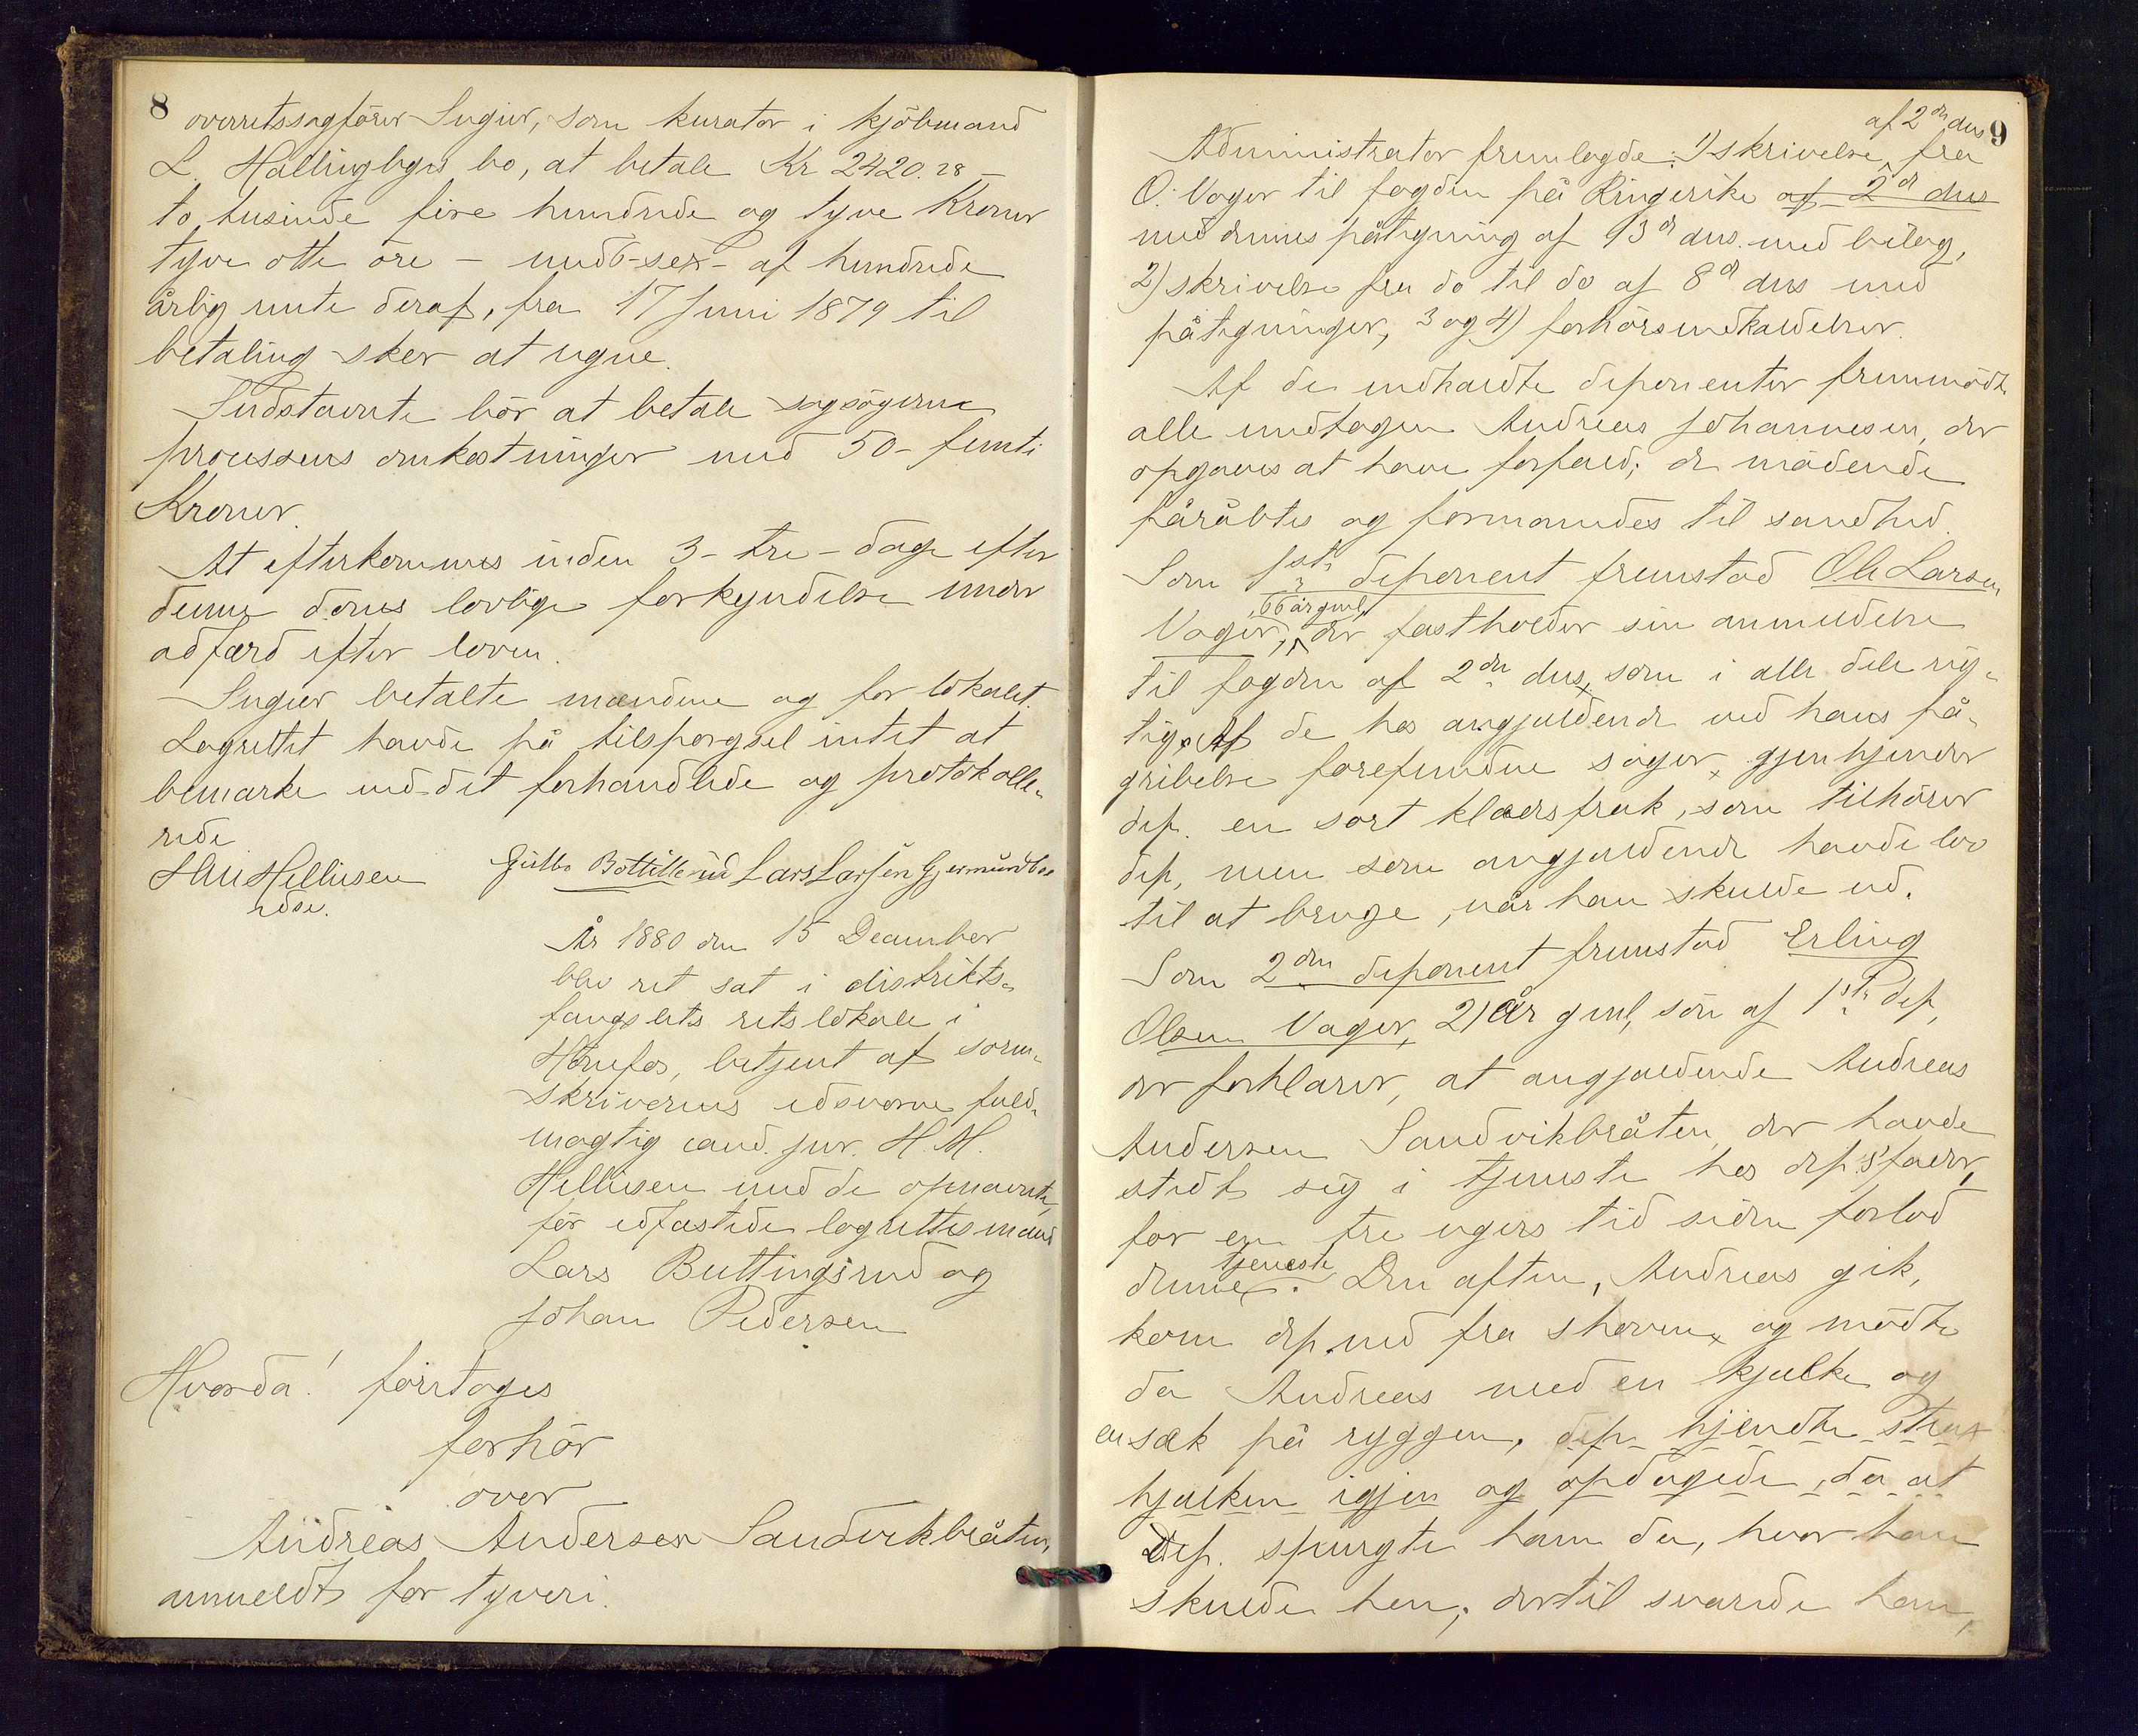 8
overretssagförer Sugier, som kurator i kjöbmand
L. Hallingbys bo, at betale Kr 2420.28 –
to tusinde fire hundrede og tyve Kroner
tyve otte öre – med 6 – sex – af hundrede
årlig rente deraf, fra 17 Juni 1879 til
betaling sker at regne.
Indstævnte bör at betale sagsögerne
processens omkostninger med 50 – femti
Kroner.
At efterkommes inden 3 – tre – dage efter
denne doms lovlige forkyndelse under
adfærd efter loven.
Sugier betalte mændene og for lokalet.
Lagrettet havde på tilspørgsel intet at
bemærke ved det forhandlede og protokolle-
rede
HM Hellisen Gulbr Bottillerud Lars Larsen Gjermundbo
edsv.
År 1880 den 15 December
blev ret sat i distrikts-
fængslets retslokale i
Hönefos, betjent af soren-
skriverens edsvorne fuld-
mægtig cand. jur. H. M.
Hellisen med de opnævnte,
för edfæstede lagrettesmænd
Lars Buttingsrud og
Johan Pedersen
Hvorda! företoges
forhör
over
Andreas Andersen Sandvikbråten,
anmeldt for tyveri.
9
af 2den dns
Administrator fremlagde: 1) skrivelse fra
O. Vager til fogden på Ringerike af 2d dns
med dennes påtegning af 13d dns. med bilag,
2) skrivelse fra do til do af 8d dns med
påtegninger, 3 og 4) forhörsindkaldelser.
Af de indkaldte deponenter fremmödte
alle undtagen Andreas Johannesen, der
opgaves at have forfald; de mödende
påråbtes og formanedes til sandhed.
Som 1ste deponent fremstod Ole Larsen
66 år gml,
Vager, der fastholder sin anmeldelse
til fogden af 2den dns, som i alle dele rig-
tig. Af de hos angjældende ved hans på-
gribelse forefundne sager gjenkjender
dep. en sort klædesfrak, som tilhörer
dep, men som angjældende havde lov
til at bruge, når han skulde ud.
Som 2den deponent fremstod Erling
Olsen Vager, 21 år gml, sön af 1ste dep,
der forklarer, at angjældende Andreas
Andersen Sandvikbråten, der havde
stedt sig i tjeneste hos dep's fader,
for en tre ugers tid siden forlod
tjeneste
denne. Den aften, Andreas gik,
kom dep ned fra skoven og mödte
da Andreas med en kjælke og
en sæk på ryggen, dep kjendte strax
kjælken igjen og opdagede, da at
Dep. spurgte ham da, hvor han
skulde hen; dertil svarede han,